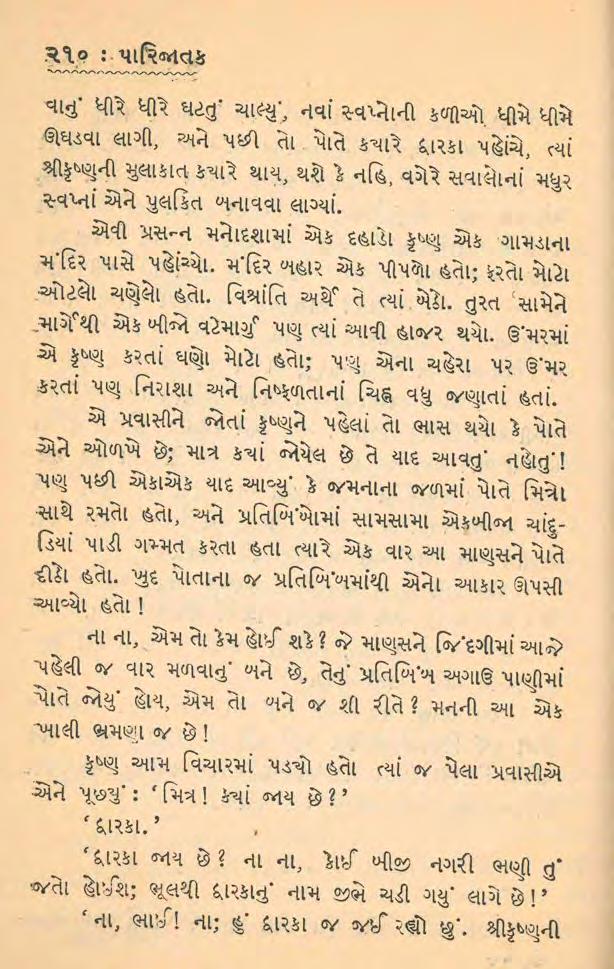 ૨૧૦ : પારિજાતક
વાનું ધીરે ધીરે ઘટતું ચાલ્યું, નવાં સ્વપ્નોની કળીઓ ધીમે ધીમે
ઊઘડવા લાગી, અને પછી તો પોતે કયારે દ્વારકા પહોંચે, ત્યાં
શ્રીકૃષ્ણની મુલાકાત કયારે થાય, થશે કે નહિ, વગેરે સવાલોનાં મધુર
સ્વપ્નાં એને પુલકિત બનાવવા લાગ્યાં.
એવી પ્રસન્ન મનોદશામાં એક દહાડો કૃષ્ણ એક ગામડાના
મંદિર પાસે પહોંચ્યો. મંદિર બહાર એક પીપળો હતો; ફરતો મોટો
ઓટલો ચણેલો હતો. વિશ્રાંતિ અર્થે તે ત્યાં બેઠો. તુરત સામેને
માર્ગેથી એક બીજો વટેમાર્ગુ પણ ત્યાં આવી હાજર થયો. ઉંમરમાં
એ કૃષ્ણ કરતાં ઘણો મોટો હતો; પણ એના ચહેરા પર ઉંમર
કરતાં પણ નિરાશા અને નિષ્ફળતાનાં ચિહ્ન વધુ જણાતાં હતાં.
એ પ્રવાસીને જોતાં કૃષ્ણને પહેલાં તો ભાસ થયો કે પોતે
એને ઓળખે છે; માત્ર કયાં જોયેલ છે તે યાદ આવતું નહોતું!
પણ પછી એકાએક યાદ આવ્યું કે જમનાના જળમાં પોતે મિત્રો
સાથે રમતો હતો, અને પ્રતિબિંબોમાં સામસામા એકબીજા ચાંદુ-
ડિયાં પાડી ગમ્મત કરતા હતા ત્યારે એક વાર આ માણસને પોતે
દીઠો હતો. ખુદ પોતાના જ પ્રતિબિંબમાંથી એનો આકાર ઊપસી
આવ્યો હતો!
ના ના, એમ તો કેમ હોઈ શકે? જે માણસને જિંદગીમાં આજે
પહેલી જ વાર મળવાનું બને છે, તેનું પ્રતિબિંબ અગાઉ પાણીમાં
પોતે જોયું હોય, એમ તો બને જ શી રીતે? મનની આ એક
ખાલી ભ્રમણા જ છે!
કૃષ્ણ આમ વિચારમાં પડ્યો હતો ત્યાં જ પેલા પ્રવાસીએ
એને પૂછ્યું: ‘મિત્ર! ક્યાં જાય છે?’
‘દ્વારકા.’
‘દ્વારકા જાય છે? ના ના, કોઈ બીજી નગરી ભણી તું
જતો હોઈશ; ભૂલથી દ્વારકાનું નામ જીભે ચડી ગયું લાગે છે!’
‘ના, ભાઈ! ના; હું દ્વારકા જ જઈ રહ્યો છું. શ્રીકૃષ્ણની